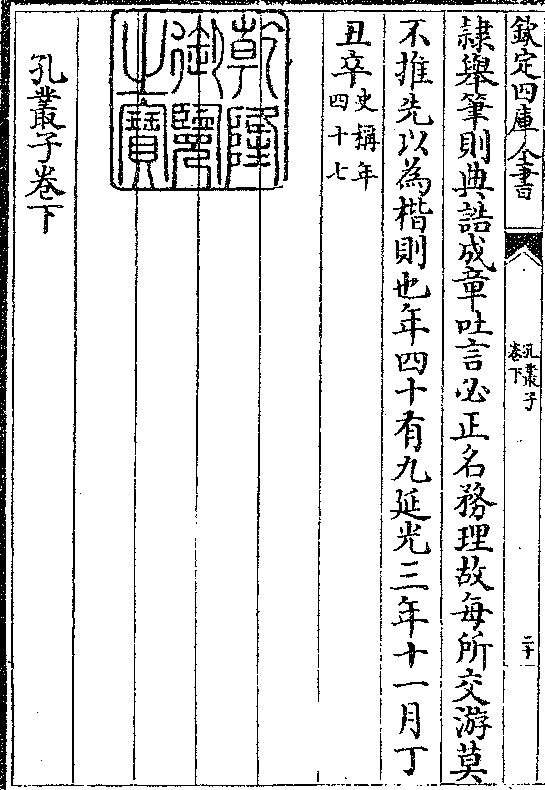 欽定四庫全書
孔叢子
卷下
二十一
隷舉筆則典誥成章吐言必正名務理故每所交游莫
不推先以為楷則也年四十有九延光三年十一月丁
丑卒史稱年四十七
乾隆御覽之寶
孔叢子卷下